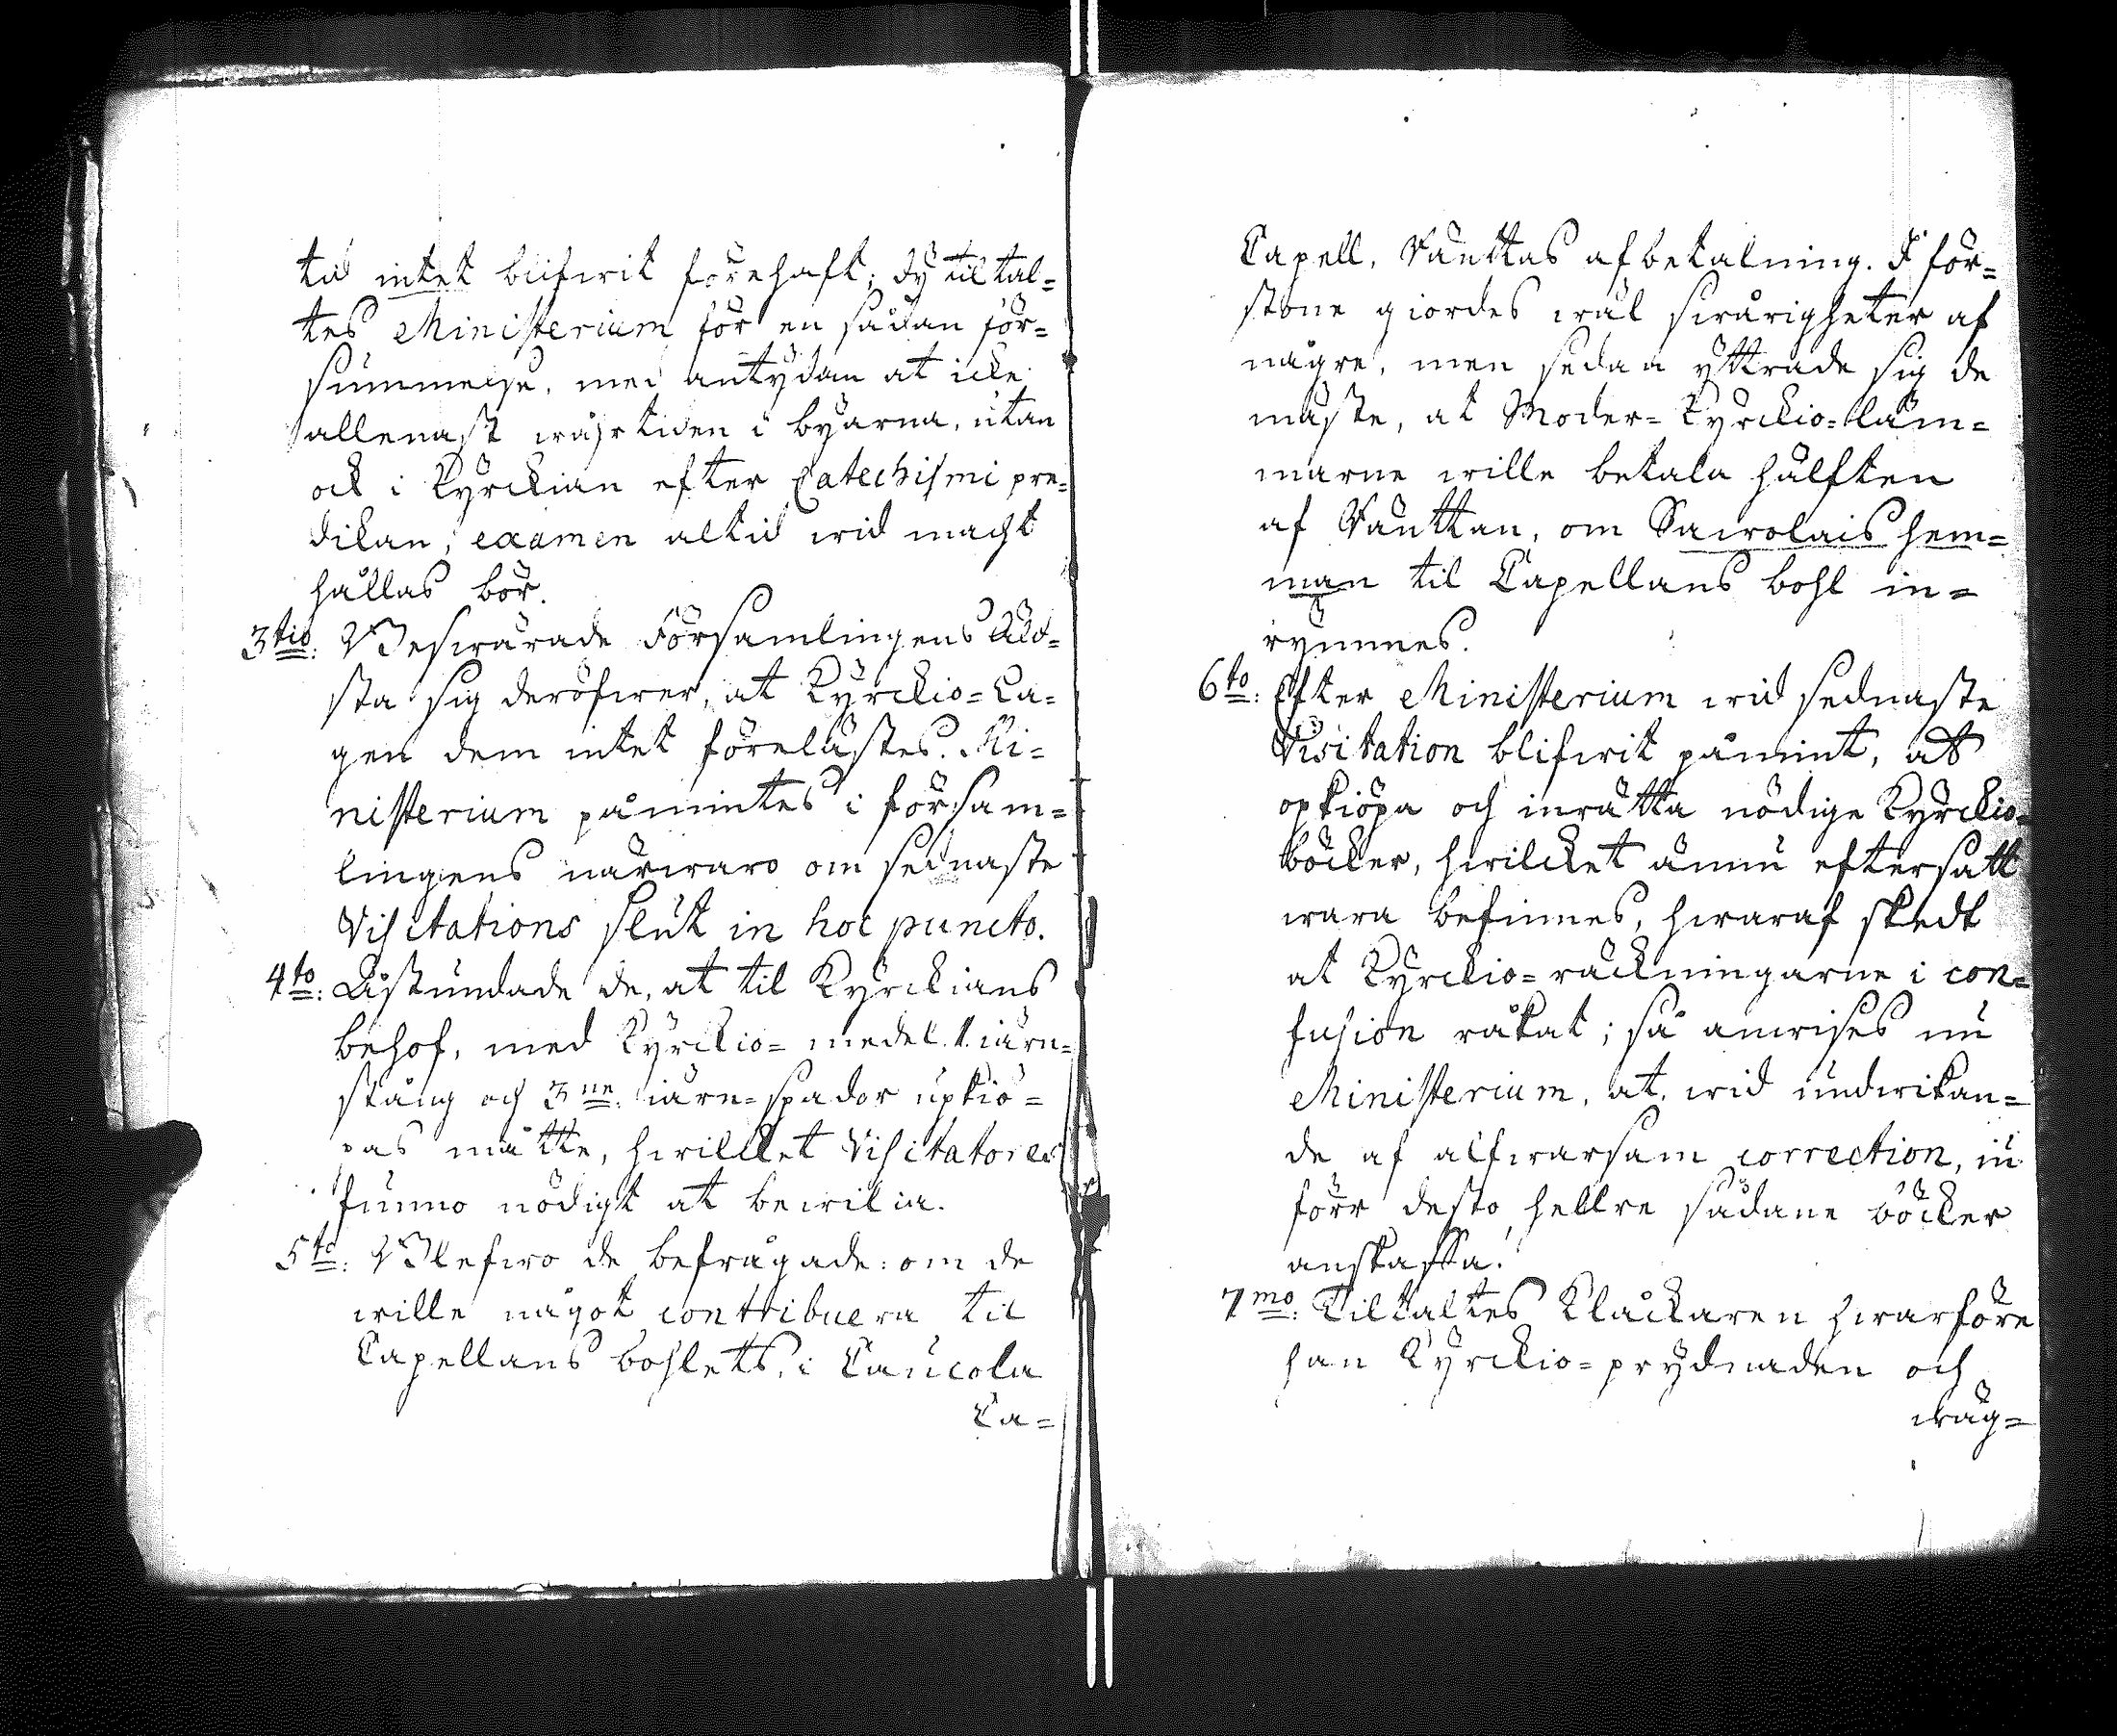 tid intet blifwit förehaft; dy tiltal=
tes Ministerium för en sådan för=
summelse, med antydan at icke
allenast wåhrtiden i byarna, utan
ock i Kyrckian efter Catechismi pre=
dikan, examen altid wid macht
hållas bör.
3tio: Beswärade Församlingens Äld=
sta sig deröfwer, at Kyrckio=La=
gen dem intet förelästes. Mi=
nisterium påmintes i försam=
lingens närwaro om sednaste
Visitations slut in hoc puncto.
4to: Åstundade de, at til Kyrckians
behof, med Kyrckio=medel 1. iärn=
stång och 3ne: iärn=spador upkiö=
pas måtte, hwilcket Visitatores
funno nödigt at bewilia.
5to: Blefwo de befrågade: om de
wille något contribuera til
Capellans bohlets, i Caucola
Ca=
Capell, Vänttas afbetalning. I för=
stone giordes wäl swårigheter af
någre, men sedan yttrade sig de
mäste, at Moder=Kyrckio=läm=
marne wille betala hälften
af Vänttan, om Sawolais hem=
man til Capellans bohl in=
rymmes.
6to: Efter Ministerium wid sednaste
Visitation blifwit påmint, at
opkiöpa och inrätta nödige Kyrckio=
böcker, hwilcket ännu eftersatt
wara befinnes, hwaraf skedt
at Kyrckio=räckningarne i con=
fusion råkat; så anwises nu
Ministerium, at wid undwikan=
de af alfwarsam correction, iu
förr desto hellre sådane böcker
anskaffa.
7mo: Tiltaltes Klåckaren hwarföre
han Kyrckio=prydnaden och
wäg=